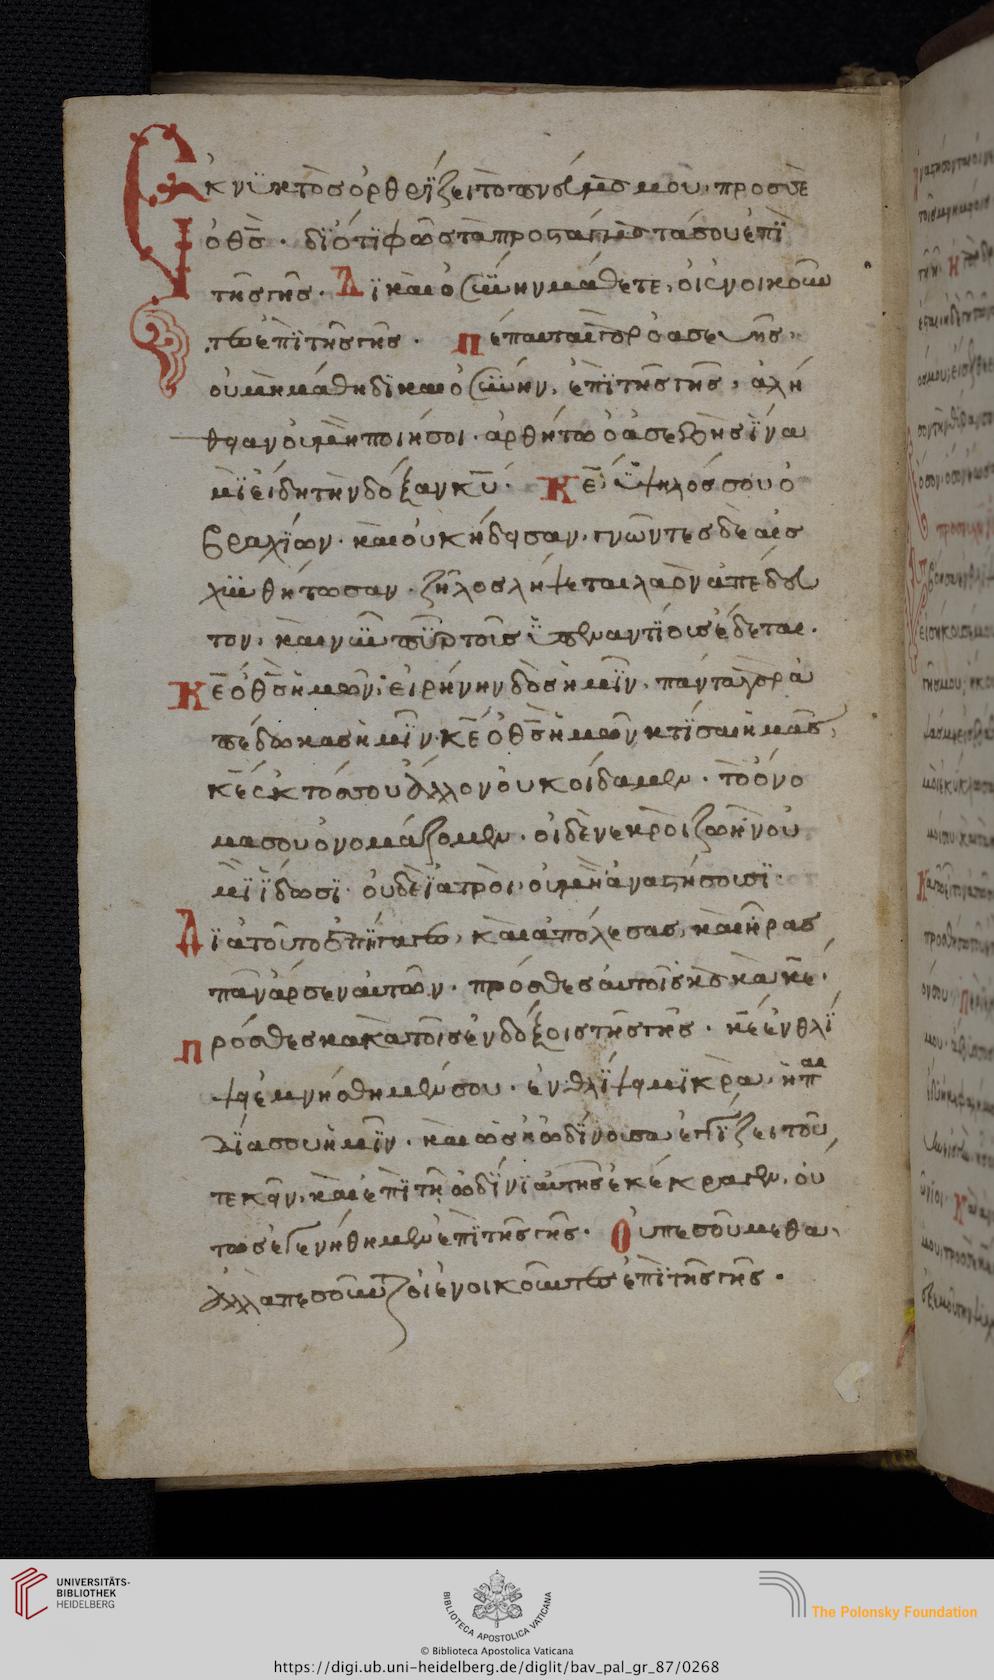 Ἐκ νϊκτὸσ ὀρθρΐζει τὸ πνεύμα μου, προσ σὲ
ὁ θσ̄. δϊότϊ φῶσ τὰ προστάγματά σου ἐπῒ
τῆσ γῆσ. Δϊκαιοσύνην μάθετε, οἱ ἐνοικοῦν
τεσ ἐπῒ τῆσ γῆσ. πέπαυται γὰρ ὁ ἀσεβὴσ.
οὐ μὴ μάθη δϊκαιοσύνην, ἐπῒ τῆσ γῆσ, ἀλή
θειαν οὐ μὴ ποιήσοι. ἀρθήτω ὁ ἀσεβὴσ ἵνα
μὴ εἴδη τὴν δόξαν κῡ. Κε̄ ὑψηλόσ σου ὁ
βραχΐων. καὶ οὐκ ήδεισαν, γνῶντεσ δὲ αἰσ
χυνθήτωσαν. ζῆλοσ λήψεται λαὸν ἀπέδευ
τον, καὶ νῦν πῦρ τοὺσ ὑπεναντΐουσ ἔδεται.
Κε̄ ὁ θσ̄ ἡμῶν, εἰρήνην δὸσ ἡμῖν, πάντα γὰρ ἀ
πέδωκασ ἡμῖν. κε̄ ὁ θσ̄ ἡμῶν κτΐσαι ἡμᾶσ,
κε̄ ἐκτόσ σου ἄλλον οὐκ οίδαμεν. τὸ όνο
μα σου ὀνομάζομεν. οἱ δὲ νεκροὶ ζωὴν οὐ
μὴ ΐδωσϊ. οὐδὲ ΐατροὶ, οὐ μὴ ἀναστήσουσϊ.
Δϊὰ τοῦτο ἐπήγαγεσ, καὶ ἀπόλεσασ, καὶ ῆρασ
πᾶν άρσεν αὐτῶν. πρόσθεσ αὐτοῖσ κακὰ κε̄.
πρόσθεσ κακὰ τοῖσ ἐνδόξοισ τῆσ γῆσ. κε̄ ἐν θλΐ
ψει ἐμνήσθημέν σου. ἐν θλΐψει μϊκρᾶ ἡ παι
δΐα σου ἡμῖν. καὶ ὡσ ἡ ὠδΐνουσα ἐγγΐζει τοῦ
τεκεῖν, καὶ ἐπῒ τῆ ὠδῖνϊ αὐτῆσ ἐκέκραγεν, οὕ
τωσ ἐγενήθημεν ἐπῒ τῆσ γῆσ. Οὐ πεσούμεθα,
ἀλλὰ πεσοῦνται οἱ ἐνοικοῦντεσ ἐπῒ τῆσ γῆσ.
UNIVERSITÄTS-
BIBLIOTHEK
HEIDELBERG
BIBLIOTECA APOSTOLICA VATICANA
The Polonsky Foundation
© Biblioteca Apostolica Vaticana
https://digi.ub.uni-heidelberg.de/diglit/bav_pal_gr_87/0268